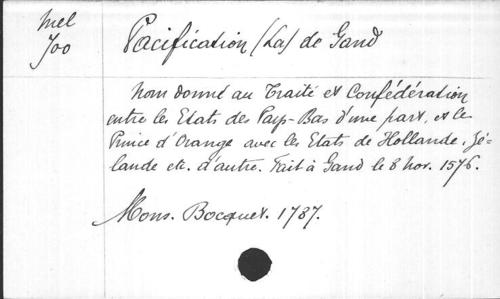 Mel
700
Pacification (La) de Gand
Nom donné au Traité et Confédération
entre les Etats des Pays-Bas d'une part, et le
Prince d'Orange avec les Etats de Hollande, Zé-
lande etc. d'autre. Fait à Gand le 8 nov. 1576.
Mons. Bocquet. 1787.